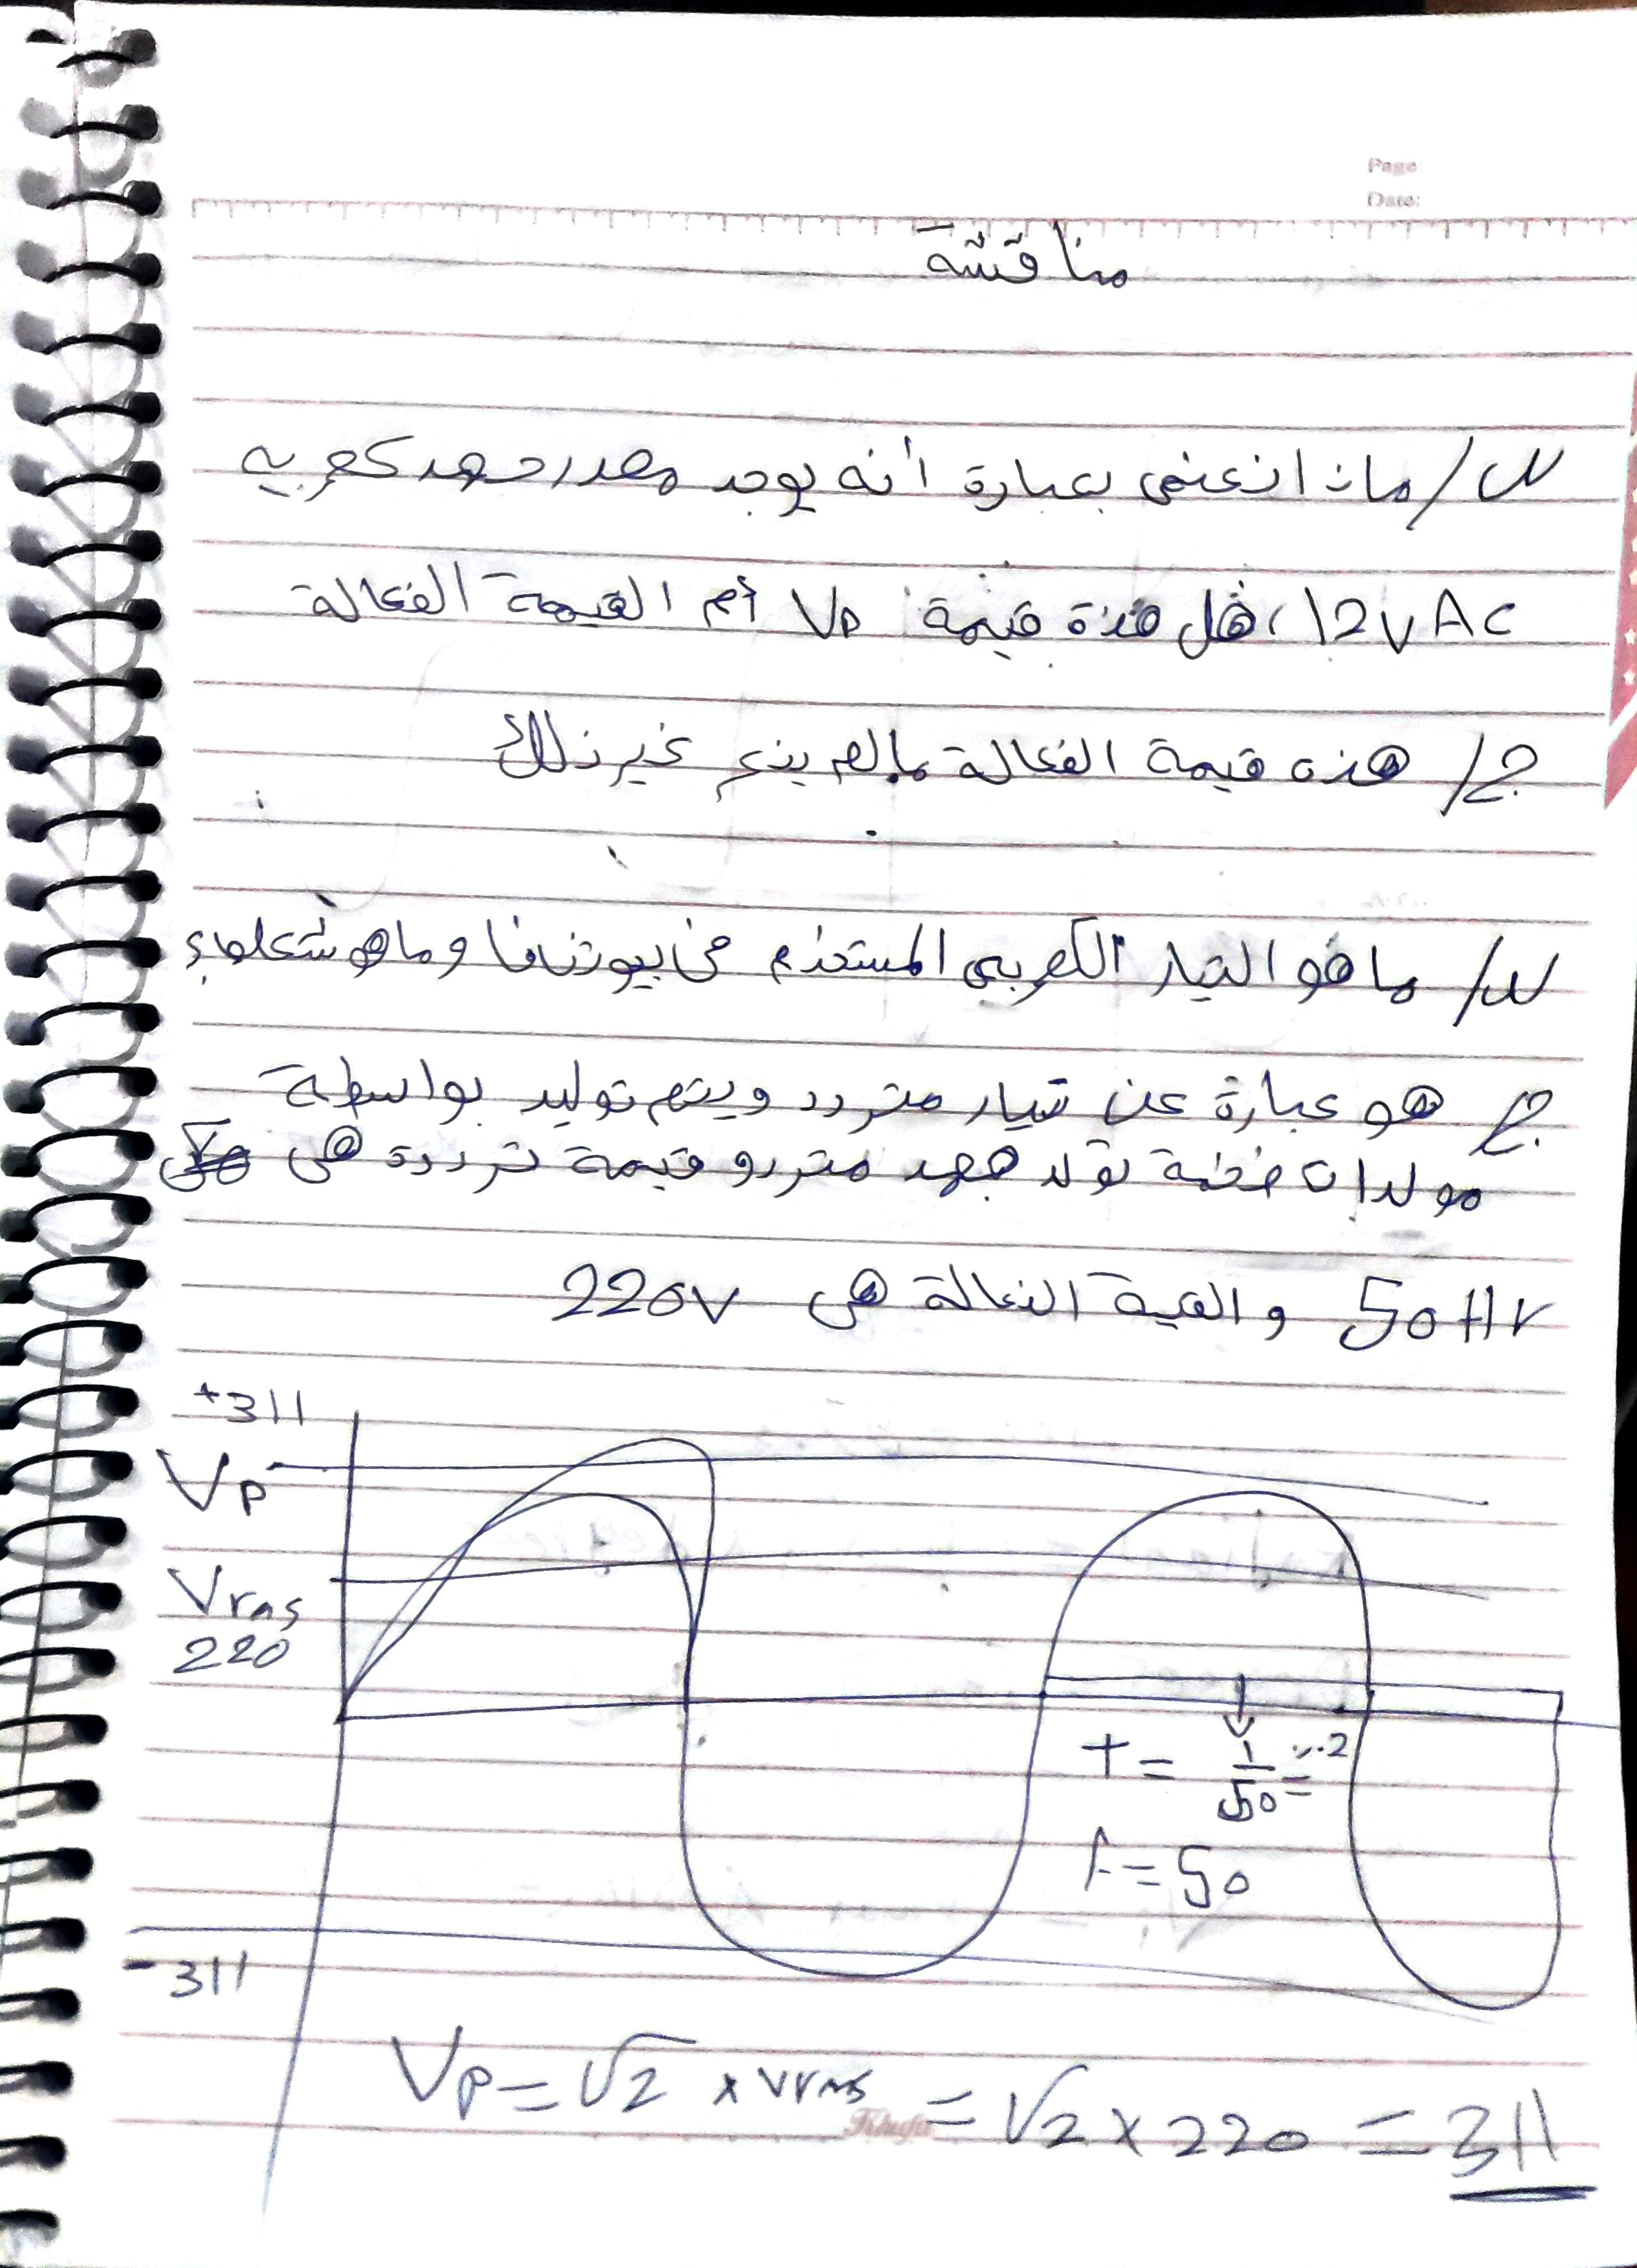 Page:
Date:
مناقشة
س/ ماذا نعني بعبارة أنه يوجد مصدر جهد كهربيه
12V AC، هل هذة قيمة Vp أم القيمة الفعالة
ج/ هذه قيمة الفعالة مالم يذكر غير ذلك
س/ ما هو التيار الكهربي المستخدم في بيوتنا وما هو شكله؟
ج هو عبارة عن تيار متردد ويتم توليد بواسطة
مولدات ضخمة تولد جهد متردو قيمة ترددة هي
50 Hr والقية الفعالة هي 220V
+311
Vp
Vrms
220
T = 1/50 = 0.02
f = 50
-311
Vp = √2 x vrms = √2 x 220 = 311